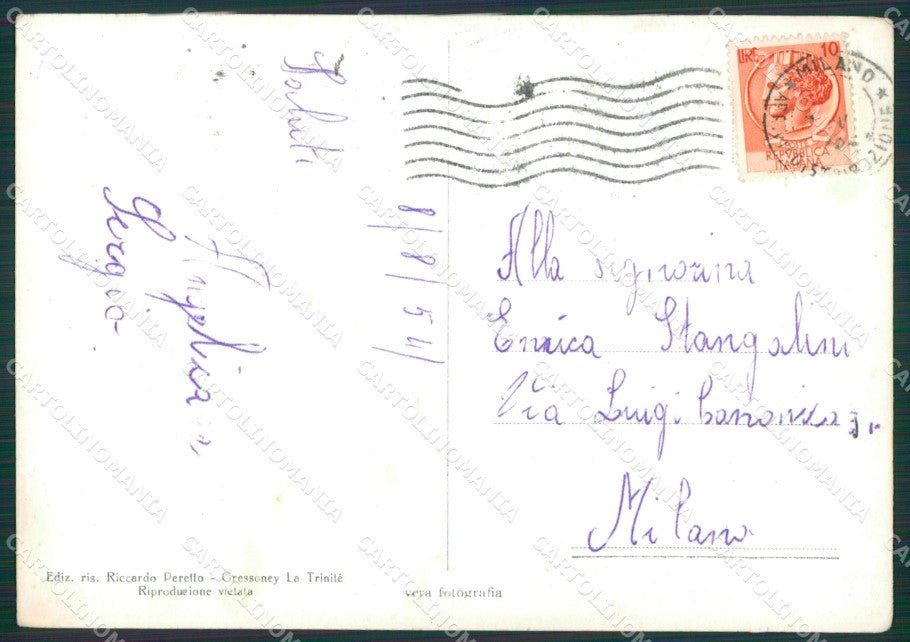 Saluti
Angelica
Sergio
8/8/54
LIRE 10
REPUBBLICA
ITALIANA
MILANO
DISTRIBUZIONE
Alla signorina
Enrica Stangalini
Via Luigi Canonica
Milano
Ediz. ris. Riccardo Peretto - Gressoney La Trinité
Riproduzione vietata
vera fotografia
CARTOLINOMANIA